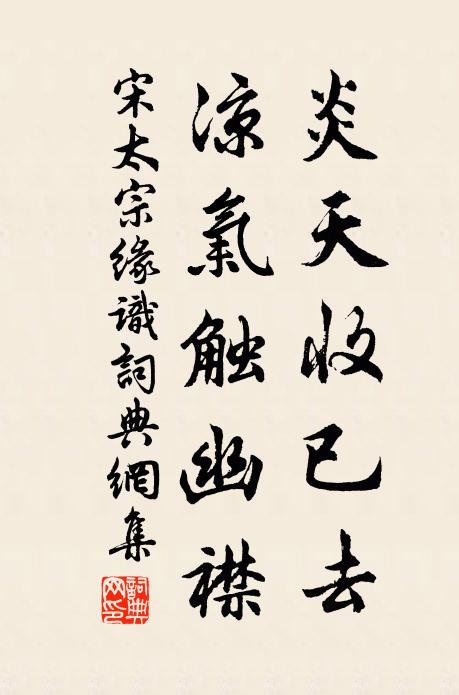 炎天收已去
涼氣触幽襟
宋太宗緣識詞典網集
詞典网印